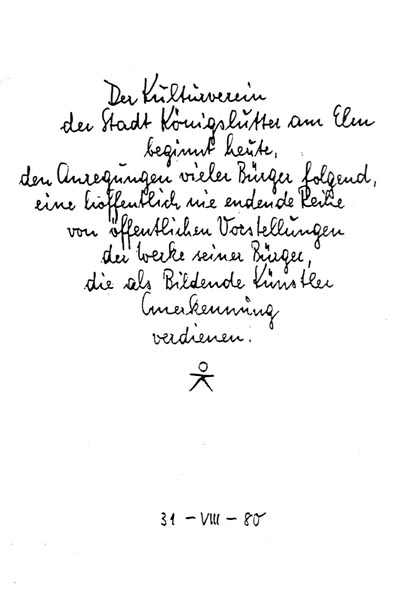 Der Kulturverein
der Stadt Königslutter am Elm
beginnt heute,
den Anregungen vieler Bürger folgend,
eine hoffentlich nie endende Reihe
von öffentlichen Vorstellungen
der Werke seiner Bürger,
die als Bildende Künstler
Anerkennung
verdienen.
31 - VIII - 80